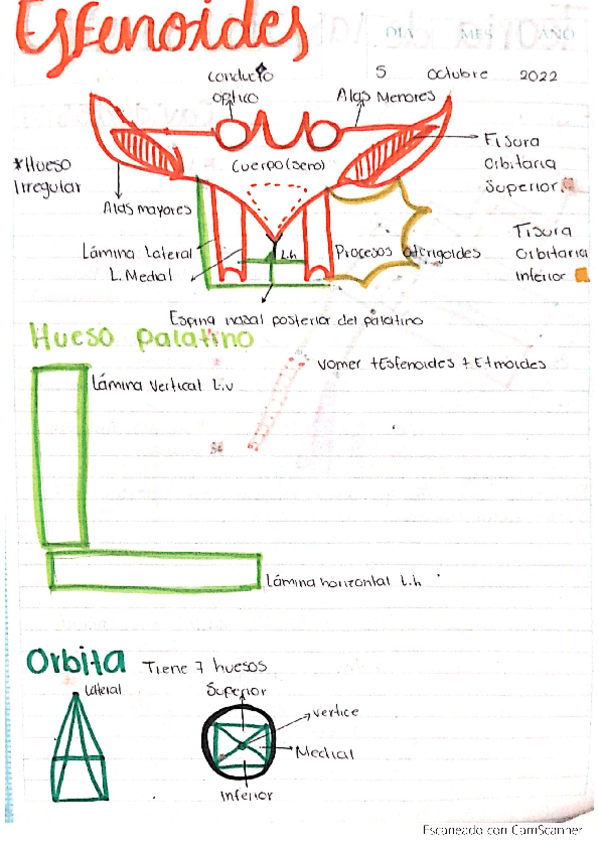 Esfenoides
DIA MES AÑO
5 Octubre 2022
conducto
optico
Alas Menores
Fisura
Orbitaria
Superior
Cuerpo (seno)
*Hueso
Irregular
Alas mayores
Lámina Lateral
L. Medial
L.h
Procesos pterigoides
Fisura
Orbitaria
Inferior
Espina nasal posterior del palatino
Hueso palatino
Vomer + Esfenoides + Etmoides
Lámina Vertical L.v
Lámina horizontal L.h
Orbita Tiene 7 huesos
Lateral
Superior
vertice
Medial
Inferior
Escaneado con CamScanner